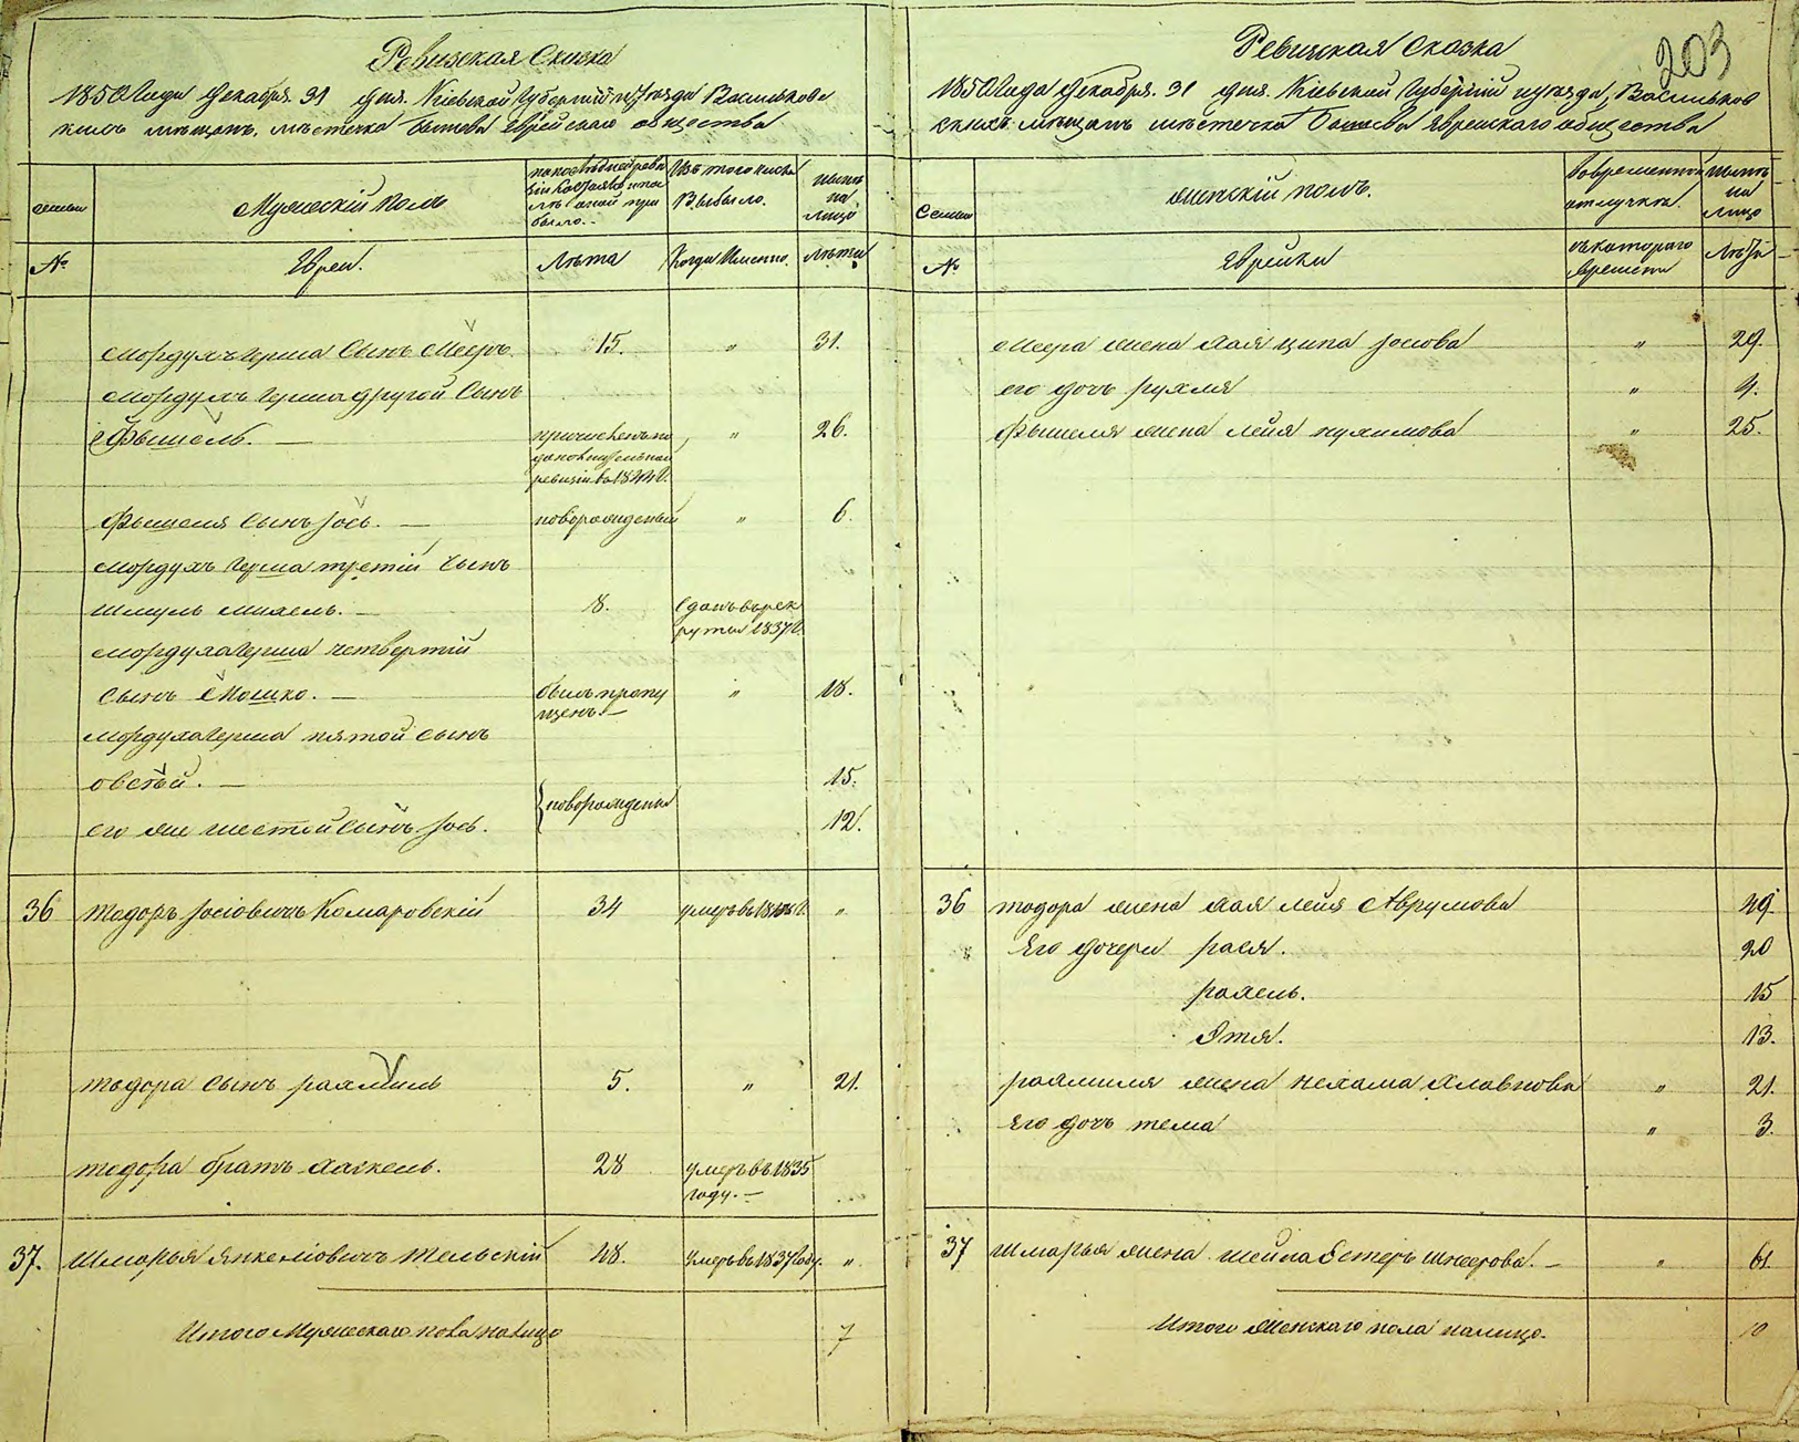 Ревизская Сказка
1850 Года Декабря 31 дня. Кіевской Губерніи и уѣзда Васильков
скихъ мѣщанъ мѣстечка Еврейскаго общества
семьи
Мужескій полъ
по последней реви
зіи состояло и по
слѣ оной при
было.
Изъ того числа
Выбыло.
ныне
на
лицо
№
Евреи.
Лѣта
Когда Именно.
Лѣта
Мордухъ Герша Сынъ Мееръ. 15. " 31.
Мордухъ Герша другой Сынъ
Фышель. — причисленъ по " 26.
дополнительной
ревизіи въ 1844 г.
Фышеля Сынъ Іось. — новорожденый " 6.
Мордухъ Герша третій Сынъ
Шмуль Михель. — 8. Сданъ в рек
руты 1837 г.
Мордуха Герша четвертій
Сынъ Мошко. — былъ пропу " 18.
щенъ. —
Мордуха Герша пятой Сынъ
Овсѣй. — 15.
новорождены
его же шестой Сынъ Іось. 12.
36 Тодоръ Іосіовичъ Комаровскій 34 умеръ въ "
Тодора Сынъ Рахмиль 5. " 21.
Тодора братъ Хаскель. 28 умеръ въ 1835
году. —
37. Шмарья Янкеліовичъ Тельскій 48. Умеръ въ 1837 Году. "
Итого Мужескаго пола на лицо 7
203
Ревизская Сказка
1850 Года Декабря 31 дня. Кіевской Губерніи и уѣзда Васильков
скихъ мѣщанъ мѣстечка Еврейскаго общества
Семьи
Женскій полъ.
Во временной
отлучкѣ.
ныне
на
лицо
№
Еврейки
съ котораго
времени
Лѣта
Меера жена Хая Ципа Іосова " 29.
его дочь Рухля " 9.
Фышеля жена Лейя Нухимова " 25.
36 Тодора жена Хая Лейя Аврумова 49.
Его дочери Рася. 20
Рахель. 15
Этя. 13.
Рахмиля жена Нехама Хлавнова " 21.
Его дочь Тема " 3.
37 Шмарья жена Шейна Естеръ Шнеерова. — " 61.
Итого Женскаго пола налицо. 10